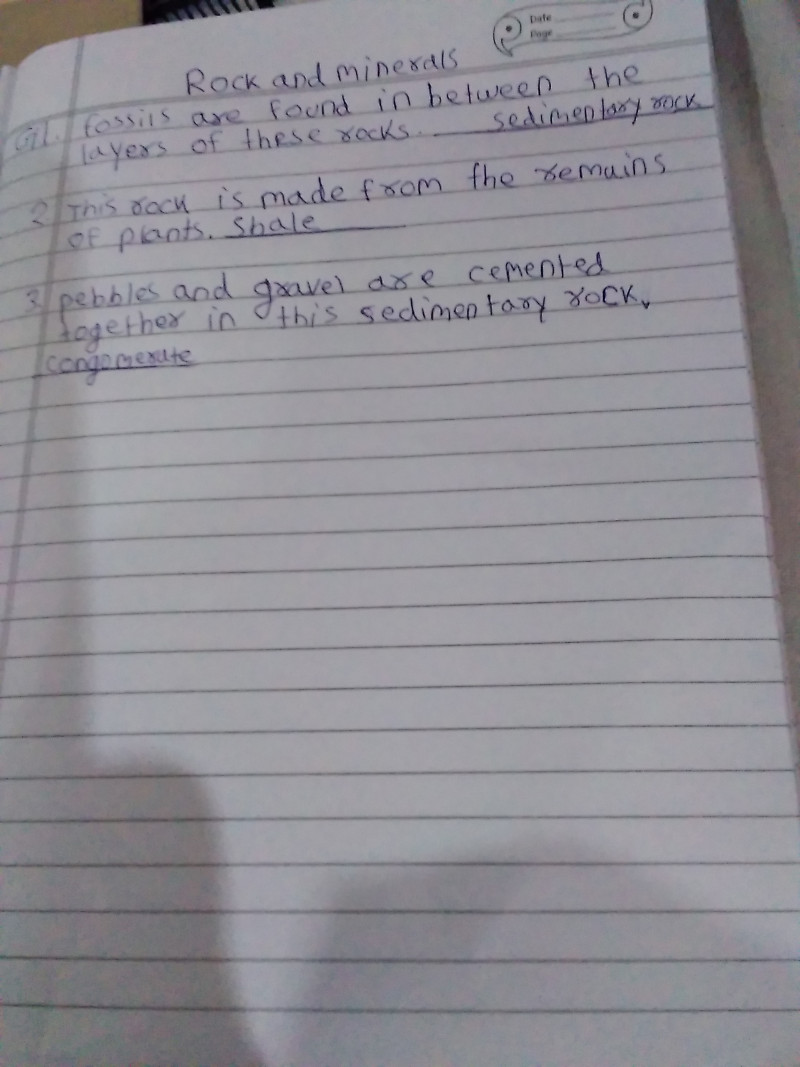 Date
Page
Rock and minerals
Q1. fossils are found in between the
layers of these rocks. sedimentary rock
2 This rock is made from the remains
of plants. Shale
3 pebbles and gravel are cemented
together in this sedimentary rock.
congomerate